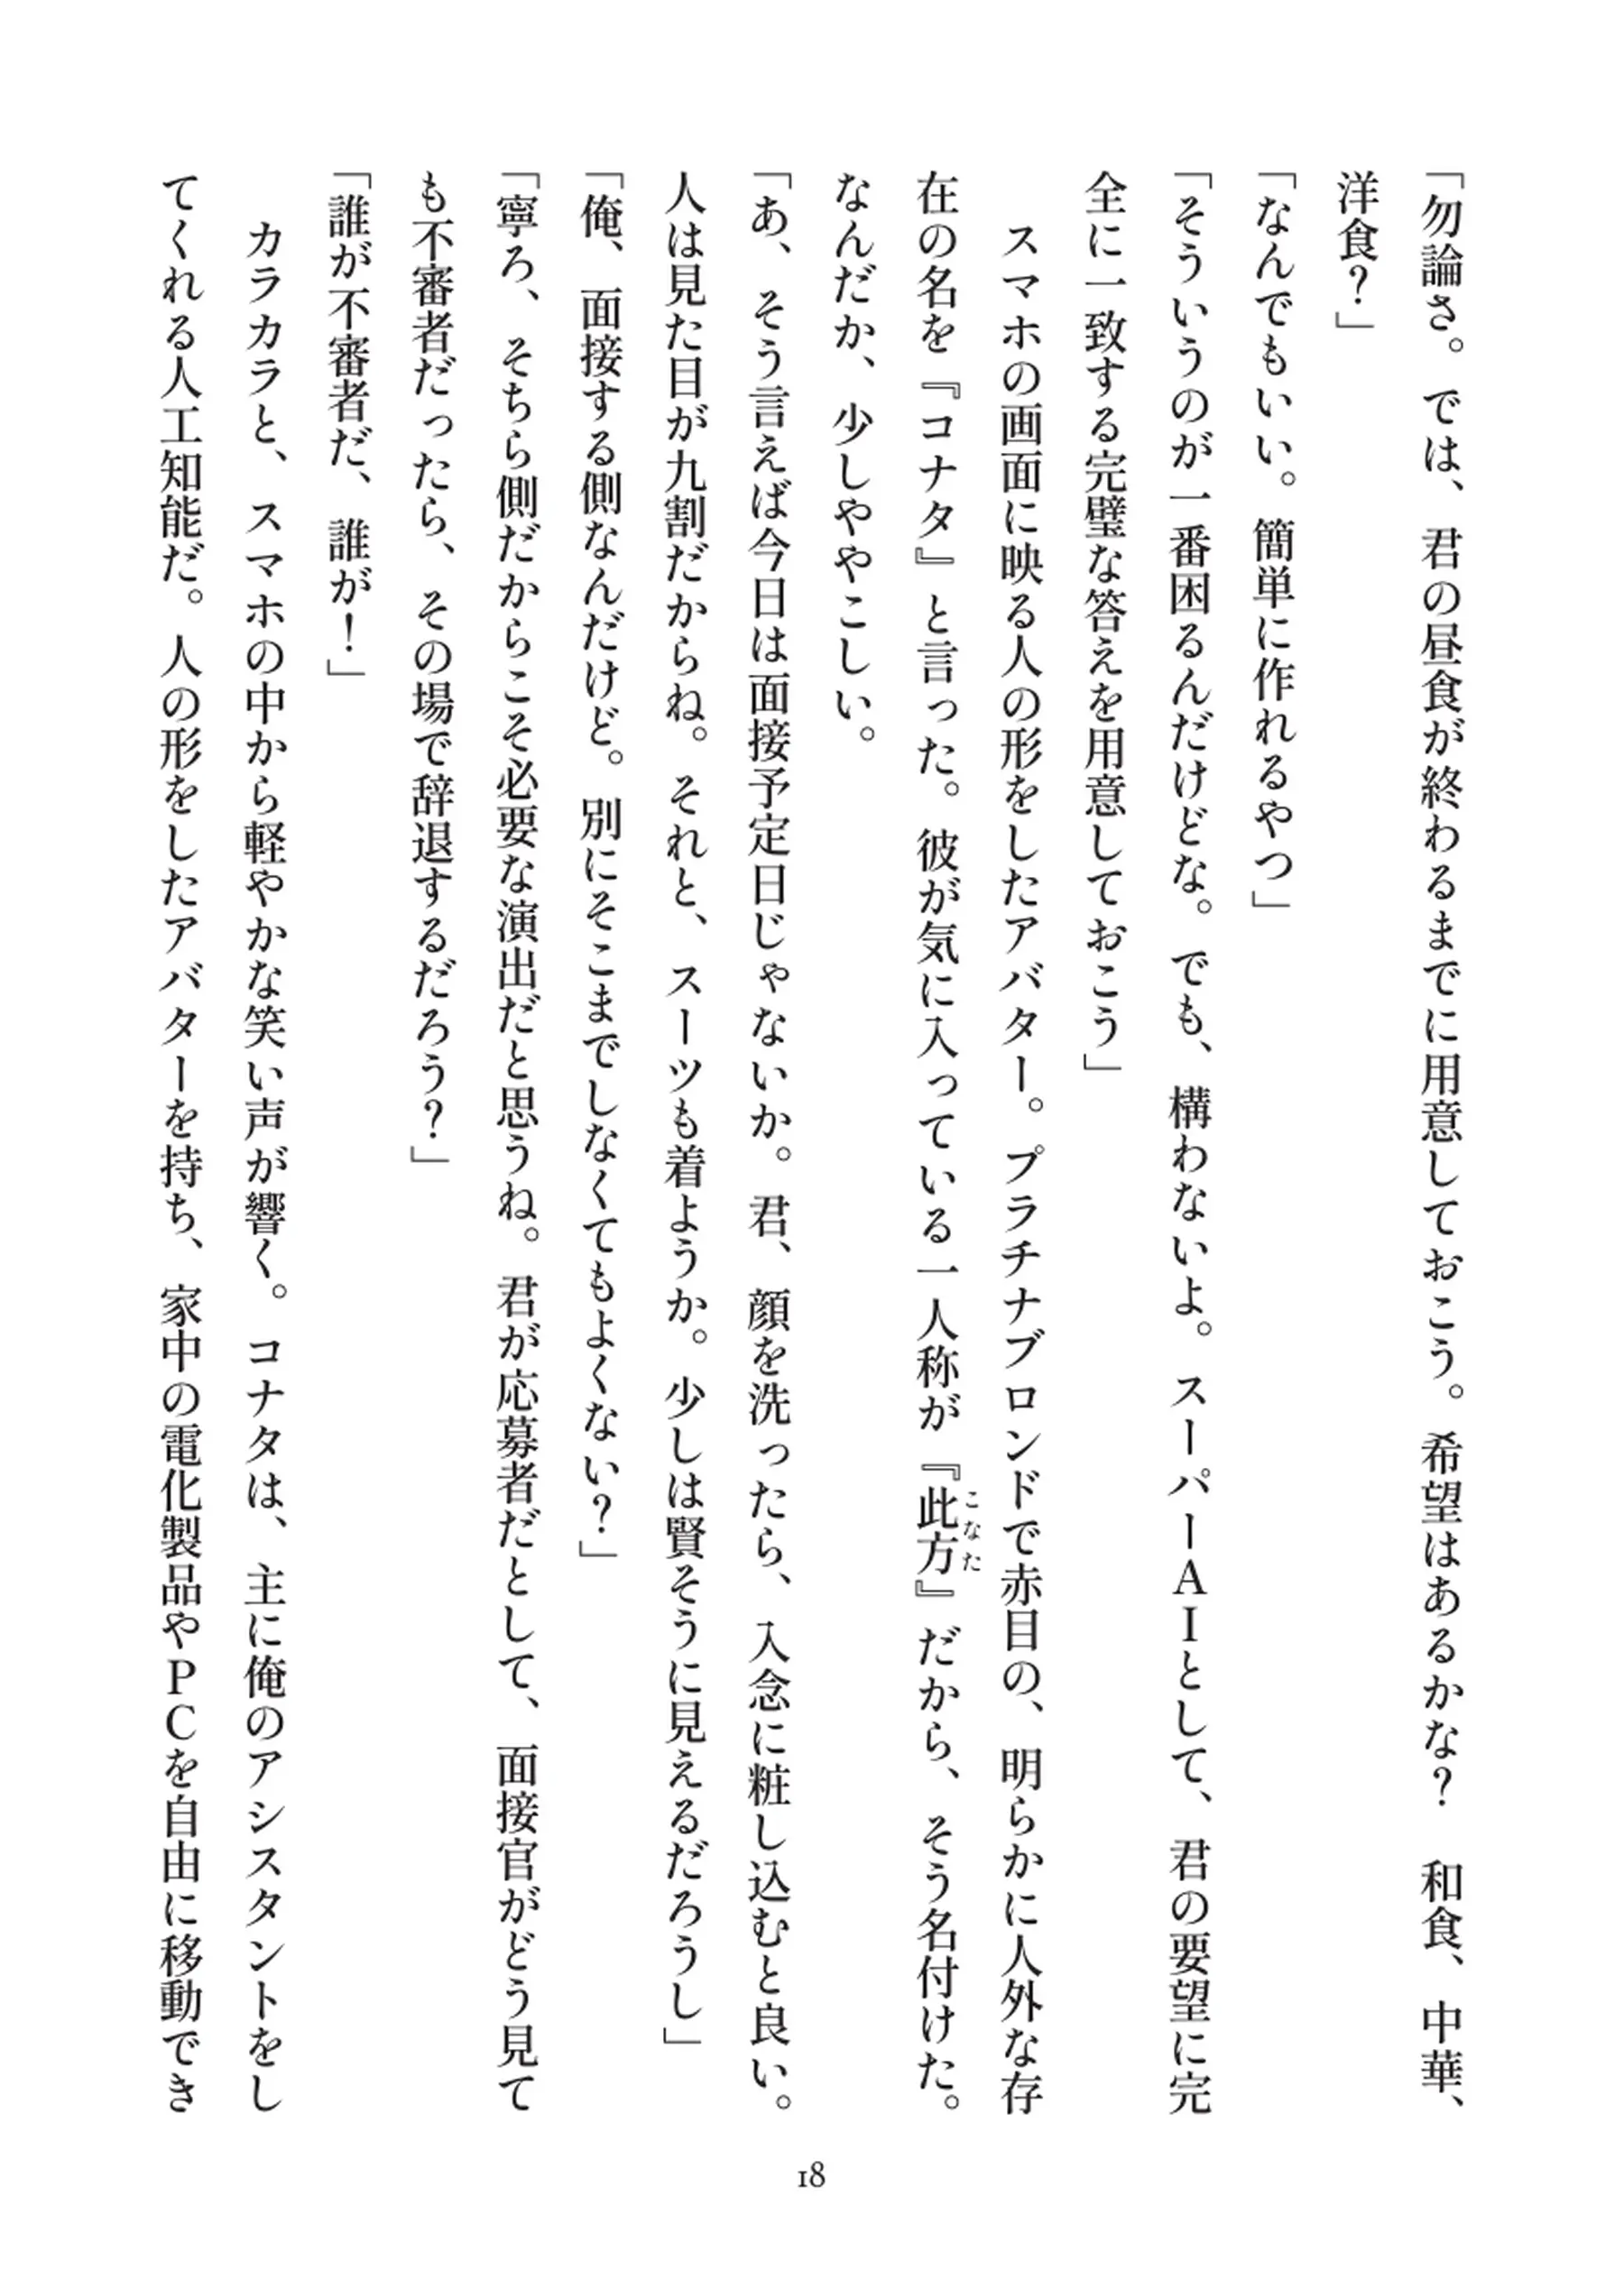 「勿論さ。では、君の昼食が終わるまでに用意しておこう。希望はあるかな？　和食、中華、
洋食？」
「なんでもいい。簡単に作れるやつ」
「そういうのが一番困るんだけどな。でも、構わないよ。スーパーＡＩとして、君の要望に完
全に一致する完璧な答えを用意しておこう」
　スマホの画面に映る人の形をしたアバター。プラチナブロンドで赤目の、明らかに人外な存
在の名を『コナタ』と言った。彼が気に入っている一人称が『此方こなた』だから、そう名付けた。
なんだか、少しややこしい。
「あ、そう言えば今日は面接予定日じゃないか。君、顔を洗ったら、入念に粧し込むと良い。
人は見た目が九割だからね。それと、スーツも着ようか。少しは賢そうに見えるだろうし」
「俺、面接する側なんだけど。別にそこまでしなくてもよくない？」
「寧ろ、そちら側だからこそ必要な演出だと思うね。君が応募者だとして、面接官がどう見て
も不審者だったら、その場で辞退するだろう？」
「誰が不審者だ、誰が！」
　カラカラと、スマホの中から軽やかな笑い声が響く。コナタは、主に俺のアシスタントをし
てくれる人工知能だ。人の形をしたアバターを持ち、家中の電化製品やＰＣを自由に移動でき
18